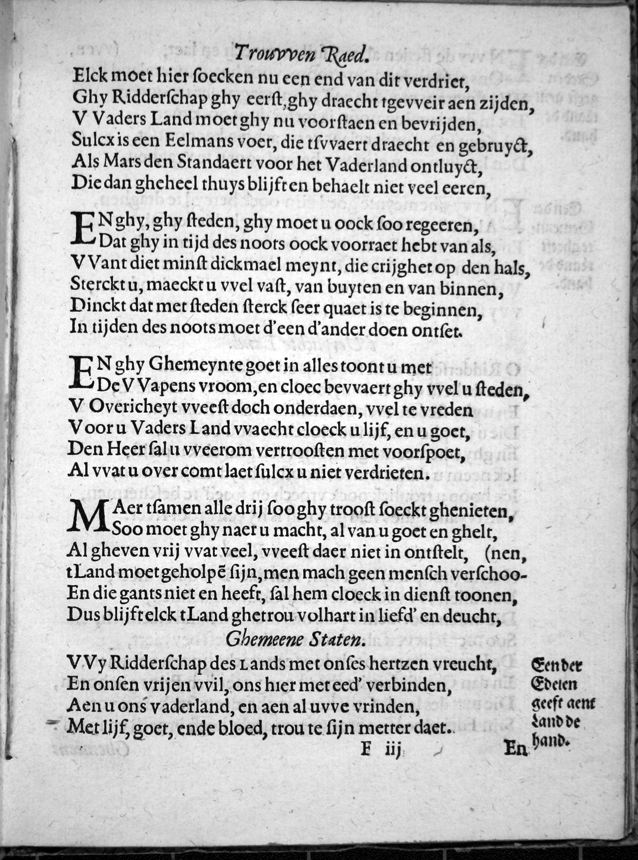 Trouvven Raed.
Elck moet hier ſoecken nu een end van dit verdriet,
Ghy Ridderſchap ghy eerſt, ghy draecht tgevveir aen zijden,
V Vaders Land moet ghy nu voorſtaen en bevrijden,
Sulcx is een Eelmans voer, die tſvvaert draecht en gebruyct,
Als Mars den Standaert voor het Vaderland ontluyct,
Die dan gheheel thuys blijft en behaelt niet veel eeren,
EN ghy, ghy ſteden, ghy moet u oock ſoo regeeren,
Dat ghy in tijd des noots oock voorraet hebt van als,
VVant diet minſt dickmael meynt, die crijghet op den hals,
Sterckt u, maeckt u vvel vaſt, van buyten en van binnen,
Dinckt dat met ſteden ſterck ſeer quaet is te beginnen,
In tijden des noots moet d'een d'ander doen ontſet.
EN ghy Ghemeynte goet in alles toont u met
De V VVapens vroom, en cloec bevvaert ghy vvel u ſteden,
V Overicheyt vveeſt doch onderdaen, vvel te vreden
Voor u Vaders Land vvaecht cloeck u lijf, en u goet,
Den Heer ſal u vveerom vertrooſten met voorſpoet,
Al vvat u over comt laet ſulcx u niet verdrieten.
MAer tſamen alle drij ſoo ghy trooſt ſoeckt ghenieten,
Soo moet ghy naer u macht, al van u goet en ghelt,
Al gheven vrij vvat veel, vveeſt daer niet in ontſtelt, (nen,
tLand moet geholpē ſijn, men mach geen menſch verſchoo-
En die gants niet en heeft, ſal hem cloeck in dienſt toonen,
Dus blijft elck tLand ghetrou volhart in liefd' en deucht,
Ghemeene Staten.
VVy Ridderſchap des Lands met onſes hertzen vreucht,
En onſen vrijen vvil, ons hier met eed' verbinden,
Aen u ons vaderland, en aen al uvve vrinden,
Met lijf, goet, ende bloed, trou te ſijn metter daet.
Een der
Edelen
geeft aent
Land de
hand.
F iij
En